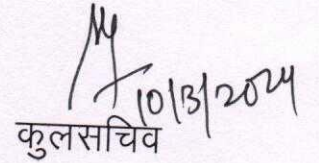 10/3/2024
कुलसचिव